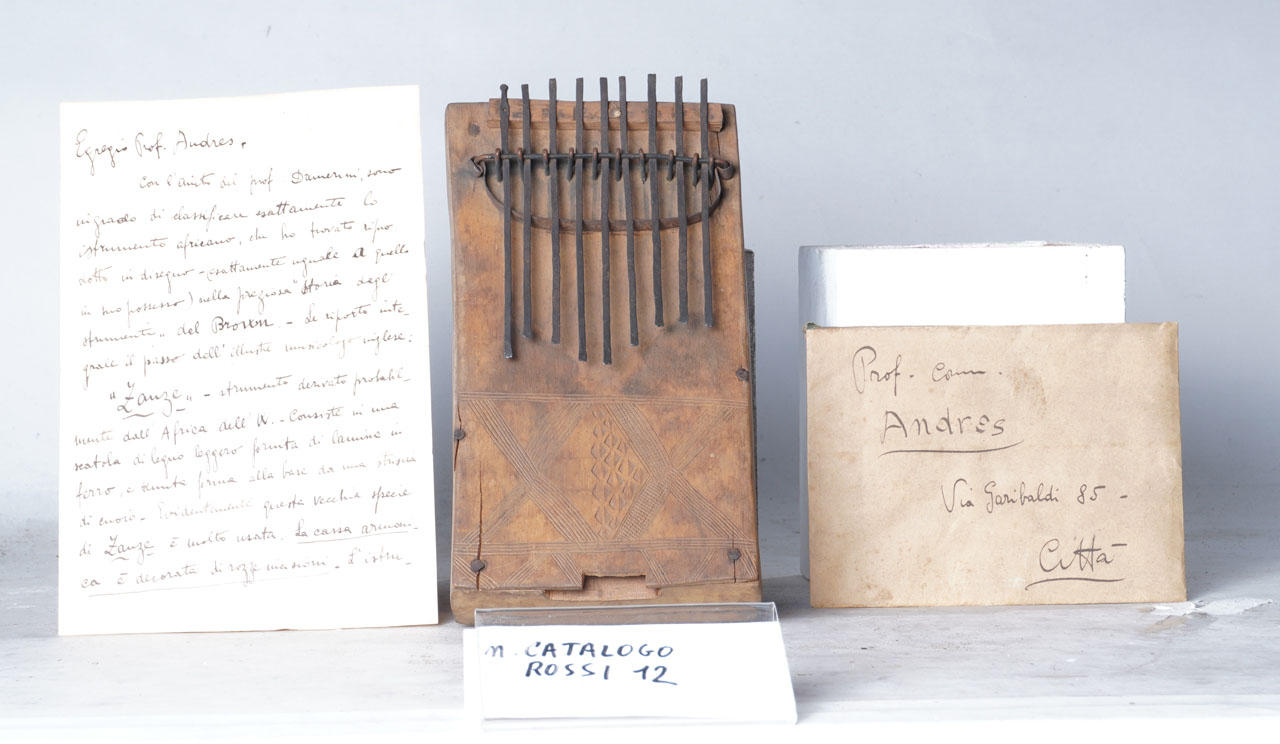 Egregio Prof. Andres.
Con l'aiuto del prof Damerini, sono
in grado di classificare esattamente lo
istrumento africano, che ho trovato ripro
dotto in disegno - (esattamente uguale a quello
in suo possesso) nella preziosa "Storia degli
strumenti" del Brown. - Le riporto inte-
grale il passo dell'illustre musicologo inglese:
"Zanze" - strumento derivato probabil-
mente dall'Africa dell'W. - Consiste in una
scatola di legno leggero fornita di lamine in
ferro, e tenuta ferma alla base da una striscia
di cuoio - Evidentemente questa vecchia specie
di Zanze è molto usata. La cassa armoni-
ca è decorata di rozze incisioni. L'istru-
n. CATALOGO
ROSSI 12
Prof. Comm.
Andres
Via Garibaldi 85 -
Città